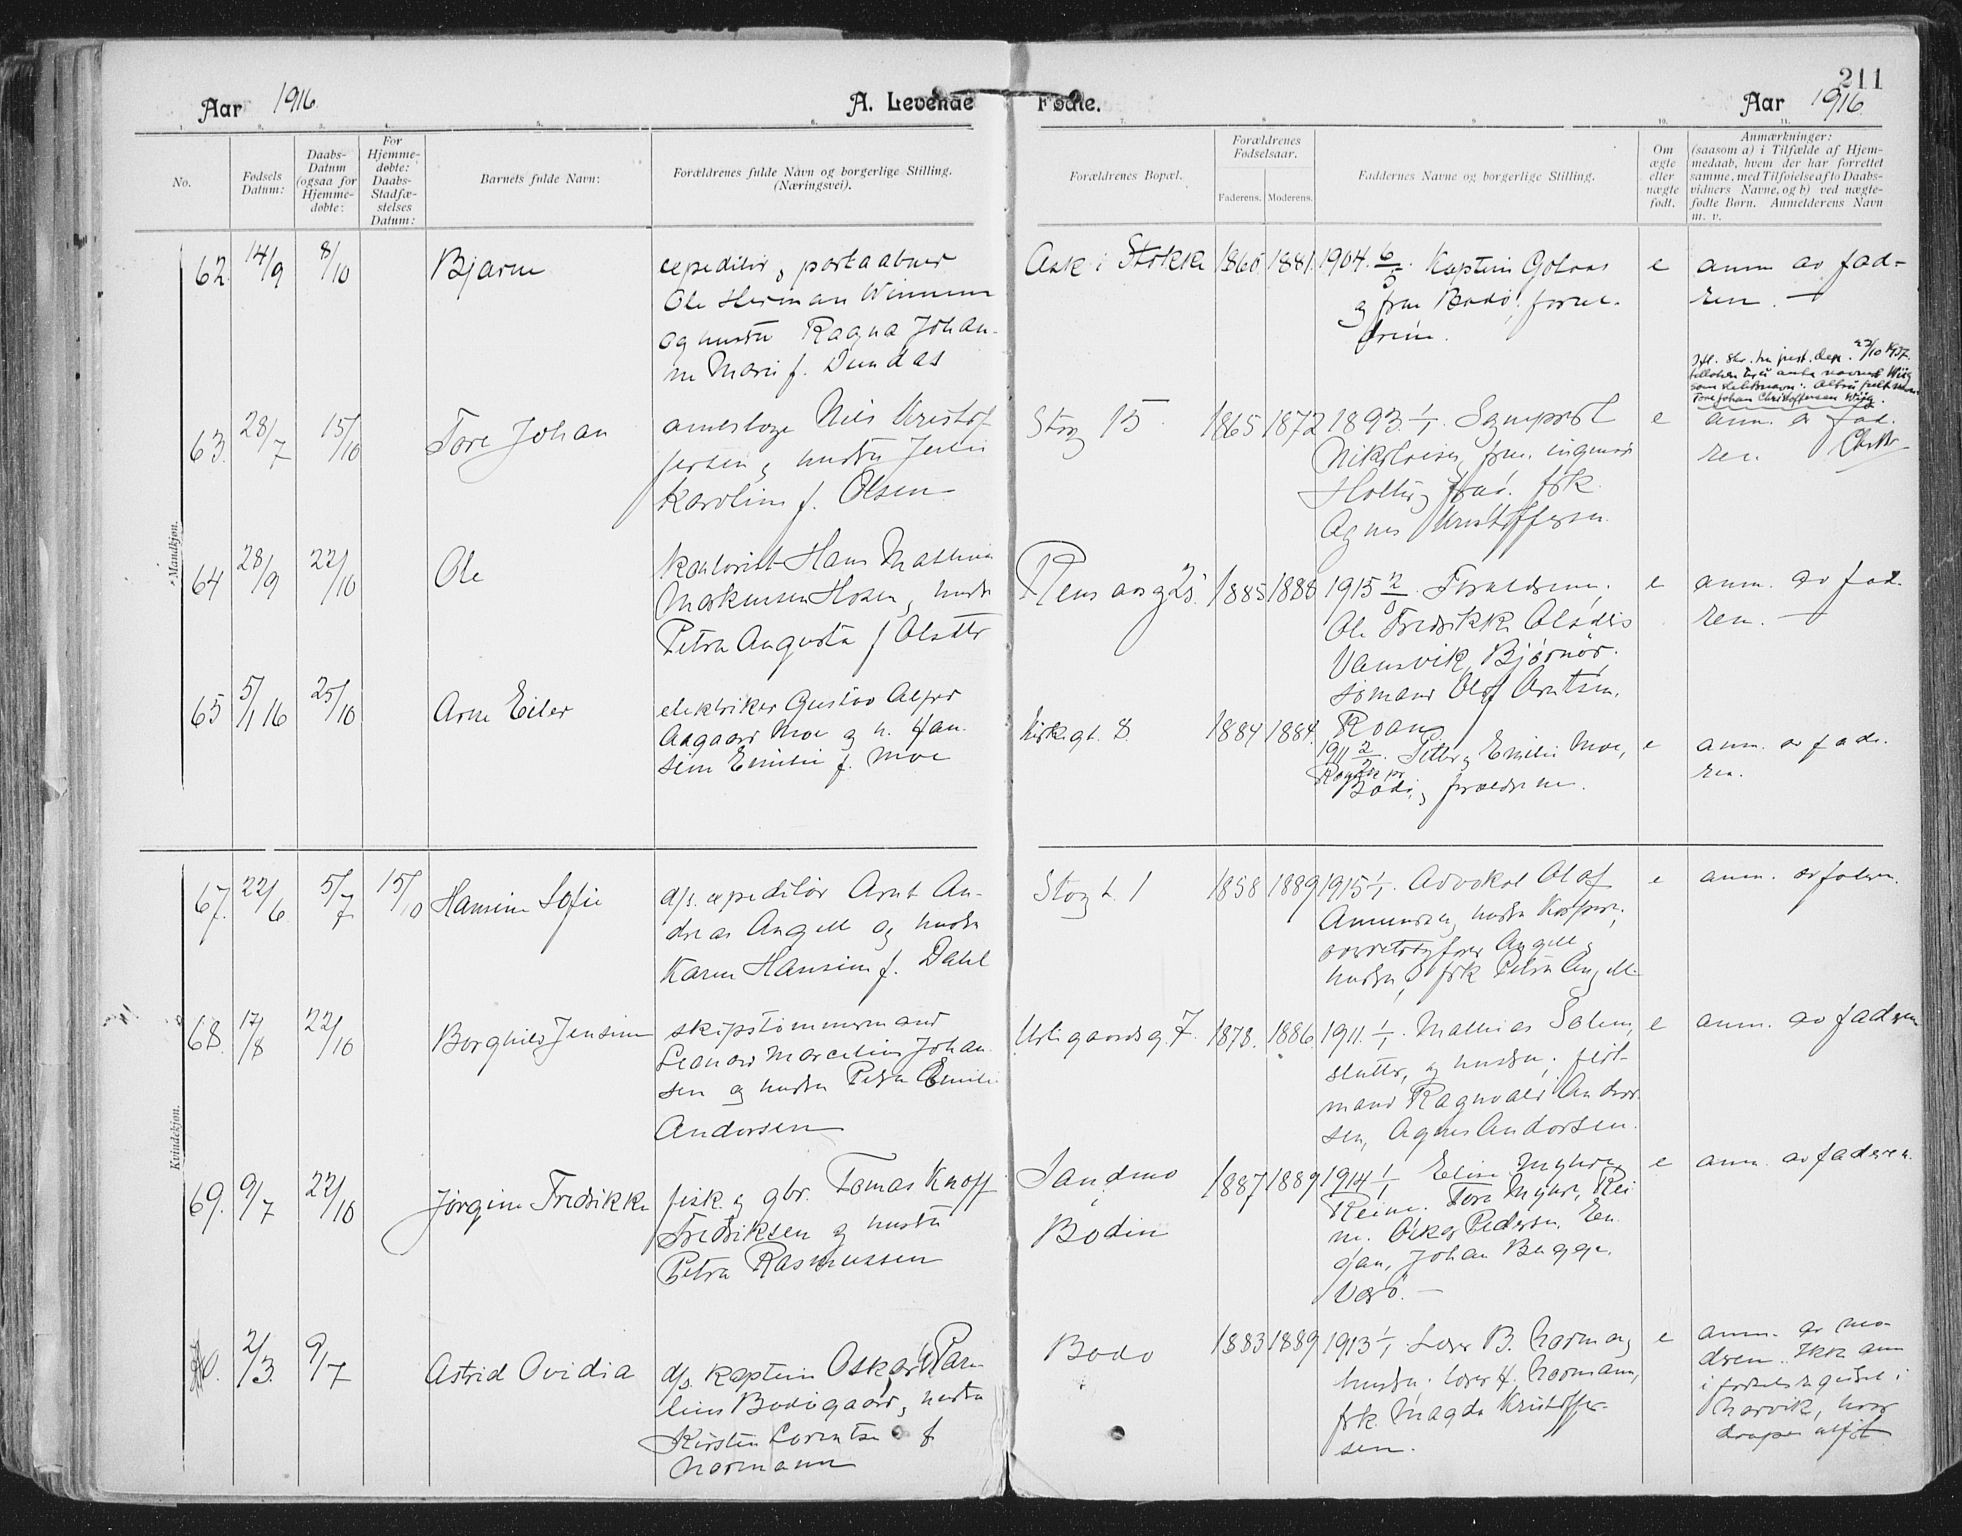 211
Aar 1916. A. Levende Fødte. Aar 1916.
1. 2. 3. 4. 5. 6. 7. 8. 9. 10. 11.
No.
Fødsels Datum:
Daabs-Datum (ogsaa for Hjemme-døbte:
For Hjemme-døbte: Daabs-Stadfæ-stelses Datum:
Barnets fulde Navn:
Forældrenes fulde Navn og borgerlige Stilling.
(Næringsvei).
Forældrenes Bopæl.
Forældrenes Fødselsaar.
Faderens. Moderens.
Faddernes Navne og borgerlige Stilling.
Om ægte eller uægte født.
Anmærkninger:
(saasom a) i Tilfælde af Hjem-
medaab, hvem der har forrettet
samme, med Tilføielse af to Daabs-
vidners Navne, og b) ved uægte-
fødte Børn. Anmelderens Navn
m. v.
Mandkjøn.
62. 14/9 8/10 Bjarne
expeditør og postaabner
Ole Herman Wimmen
og hustru Ragna Johan-
ne Marie f. Dundas
Ask i Stokke 1860. 1881.
1904. 6/5. Kaptein Golaas
og frue Bodø, foræl-
drene.
e
anm. av fad-
ren. —
63. 28/7 15/10 Tore Johan
amtsloge Nils Kristof-
fersen og hustru Julie
Karoline f. Olsen
Storg 15. 1865 1872
1893. 1/1. Sognprest
Nikolaisen frue, ingeniør
frk.
Agnes Kristoffersen
e
anm. av fad.
ren.
Tore Johan Christoffersen Wiig.
64 28/9 22/10 Ole
kontorist Hans Mathias
Markussen Hosen og hustru
Petra Augusta f. Olsdtr
Rensaasg 25. 1885 1888
1915 Forældrene,
Ole Fredrikke Olsdtr
Vansvik, Bjørnør.
sømand Olof Arntsen,
Roan
e
anm. av fad.
ren. —
65 5/1 16 25/10 Arne Eiler
elektriker Gustav Alfred
Aagaard Moe og h. Han-
sine Emilie f. Moe
Kirkegt. 8. 1884 1884.
1911 2/2. Petter og Emilie Moe,
Bodø, forældrene.
e
anm. av fade-
ren.
Kvindekjøn.
67. 22/6 5/7 15/10 Hansine Sofie
d/s. expeditør Arnt An-
dreas Angell og hustru
Karen Hansine f. Dahl
Storgt. 1 1858 1889
1915 1/1. Advokat Olaf
Amundsen, hustru
overretssagfører Angell og
hustru, frk Petra Angell.
e
anm. av faderen.
68. 17/8 22/10 Borghild Jensine
skipstømmermand
Leonard Marcelius Johan-
sen og hustru Petra Emilie
Andersen
Hestgaardsg. 7. 1878. 1886.
1911. 1/1. Mathias Solem,
slutter, og hustru,
mand Ragnvald Ander-
sen, Agnes Andersen.
e
anm. av faderen
69. 9/7 22/10 Jørgine Fredrikke
fisk. og gbr. Tomas Knoff
Fredriksen og hustru
Petra Rasmussen
Sandmo
i
Bodin
1887 1889
1914 1/1 Eline Myhre,
Reine. Tora Myhre, Rei-
ne. Oskar Pedersen, En-
gan, Johan Bugge.
Værø. —
e
anm. av faderen.
70. 2/3. 9/7 Astrid Ovidia
d/s. kaptein Oskar
Bodøgaard, og hustru
Kirsten Lorentse f.
Normann
Bodø 1883 1889
1913 1/1. Lærer B. Normann og
hustru, lærer H. Normann,
frk. Magda Kristoffer-
sen.
e
anm. av mo-
dren. Ikke anm
i fødselsregistret i
Narvik, hvor